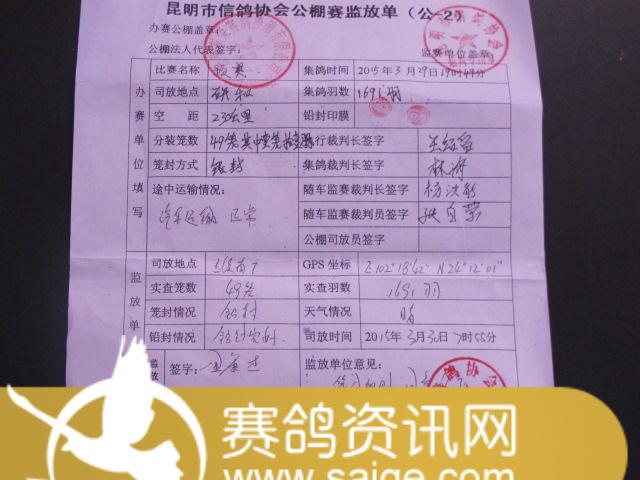 昆明市信鸽协会公棚赛监放单（公-2）
办赛公棚盖章：
公棚法人代表签字： 监赛单位盖章
办赛单位填写
比赛名称 集鸽时间 2015年3月29日19时49分
司放地点 集鸽羽数 1691羽
空 距 230公里 铅封印膜
分装笼数 49笼 执行裁判长签字
笼封方式 铅封 集鸽裁判长签字 林海
途中运输情况： 随车监赛裁判长签字
汽车运输 正常 随车监赛裁判员签字
公棚司放员签字
监放单
司放地点 GPS 坐标 E102°18′42″ N24°12′01″
实查笼数 49笼 实查羽数 1691羽
笼封情况 铅封 天气情况 晴
铅封情况 铅封完好 司放时间 2015年3月30日7时55分
签字： 监放单位意见：
赛鸽资讯网
www.saige.com